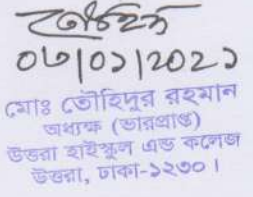 তৌহিদ
০৬/০১/২০২১
মোঃ তৌহিদুর রহমান
অধ্যক্ষ (ভারপ্রাপ্ত)
উত্তরা হাইস্কুল এন্ড কলেজ
উত্তরা, ঢাকা-১২৩০।